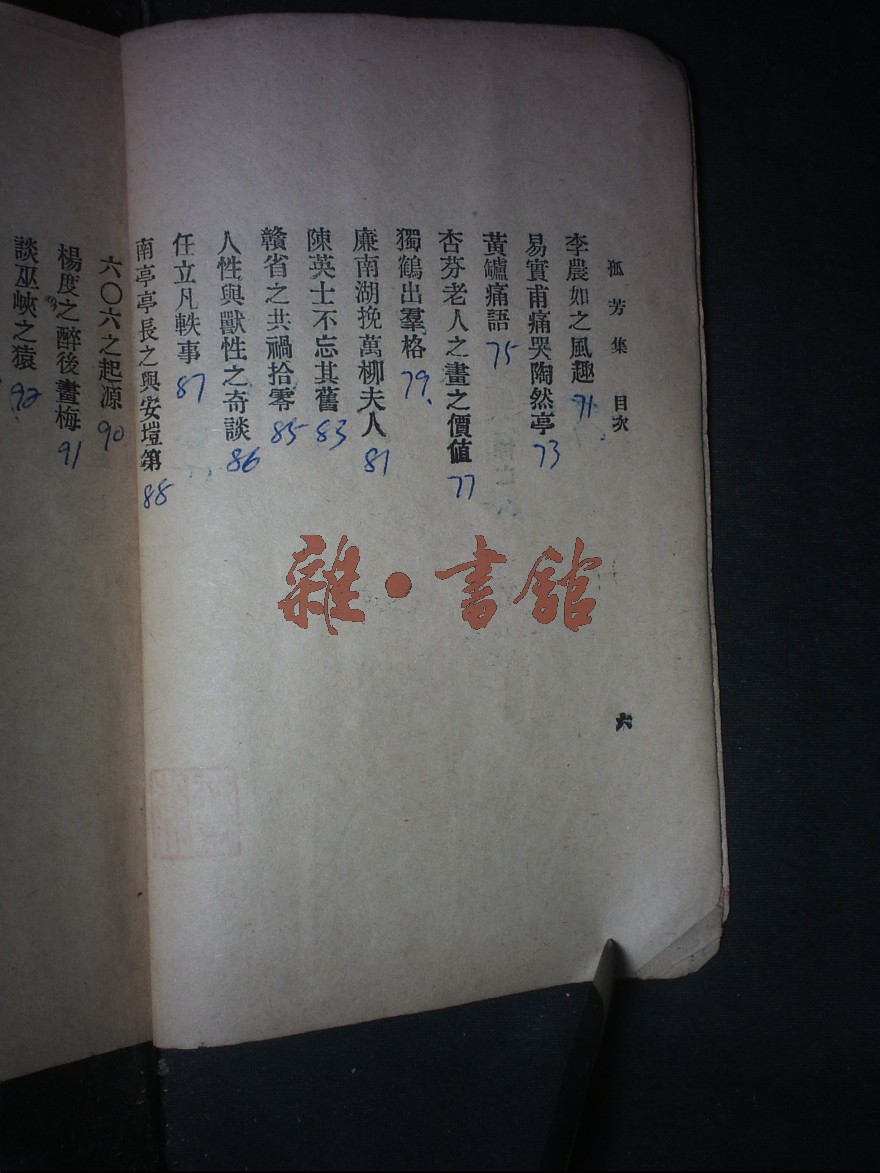 孤芳集 目次
李農如之風趣 71
易實甫痛哭陶然亭 73
黃罏痛語 75
杏芬老人之畫之價值 77
獨鶴出羣格 79
廉南湖挽萬柳夫人 81
陳英士不忘其舊 83
贛省之共禍拾零 85
人性與獸性之奇談 86
任立凡軼事 87
南亭亭長之與安塏第 88
六〇六之起源 90
楊度之醉後畫梅 91
談巫峽之猿 92
六
雜·書館